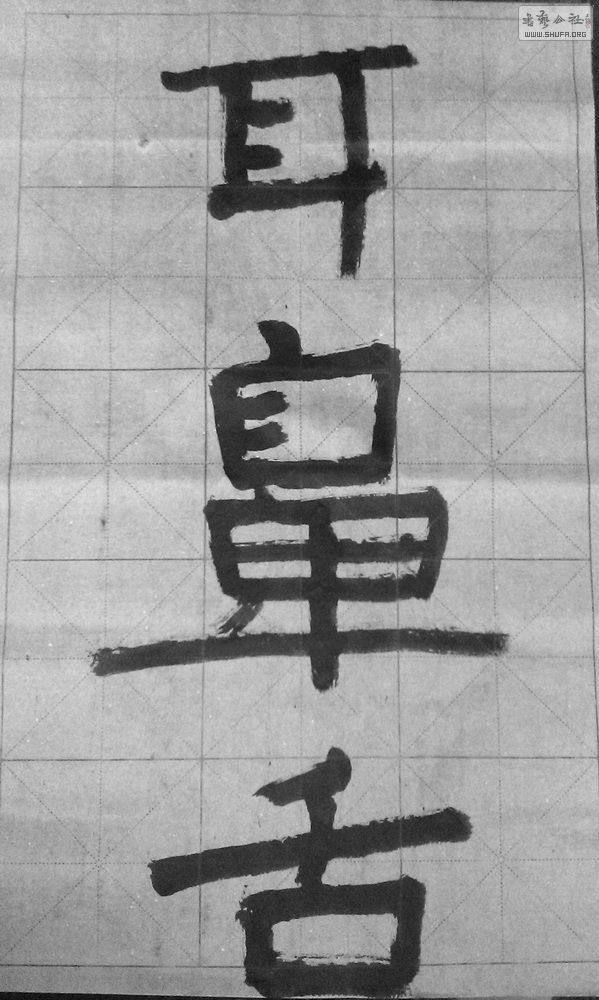 耳鼻舌
书艺公社
WWW.SHUFA.ORG